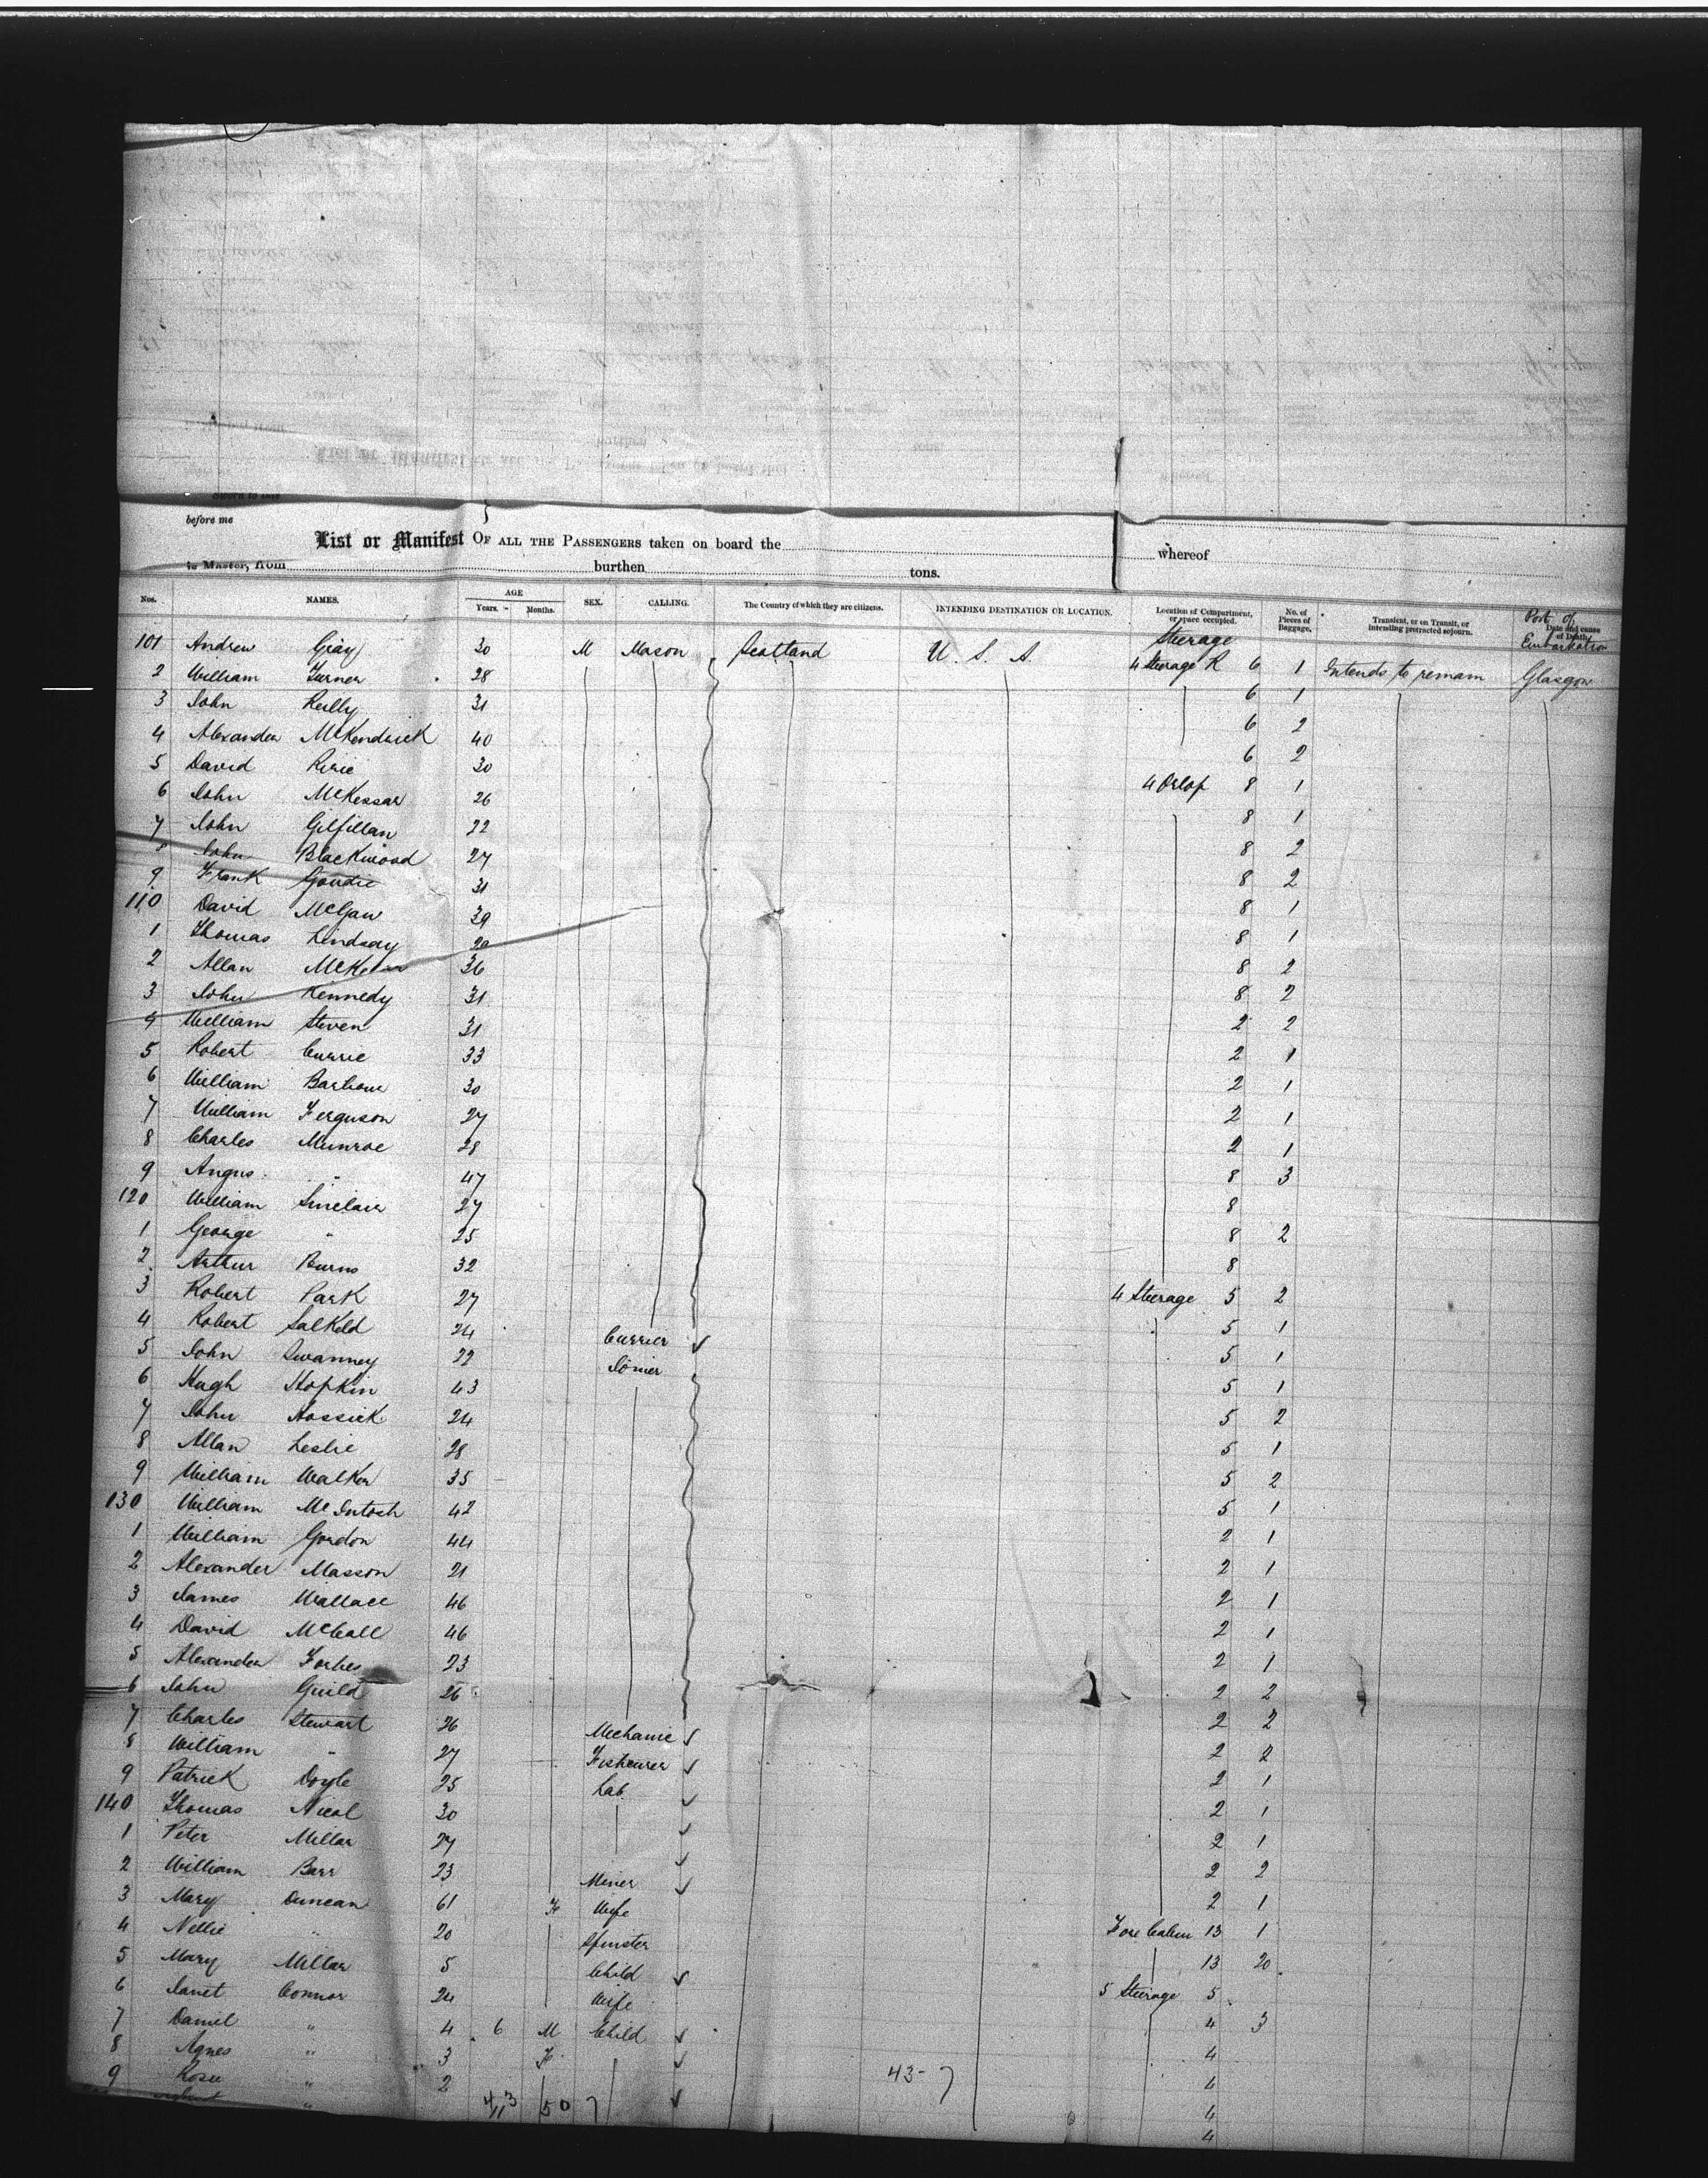 before me
List or Manifest OF ALL THE PASSENGERS taken on board the whereof
is Master, from burthen tons.
Nos. NAMES. AGE Years. Months. SEX. CALLING. The Country of which they are citizens. INTENDING DESTINATION OR LOCATION. Location of Compartment, or space occupied. No. of Pieces of Baggage. Transient, or on Transit, or intending protracted sojourn. Date and cause of Death. Port of Embarkation
Steerage
101 Andrew Gray 30 M Mason Scotland U. S. A. 4 Steerage R 6 1 Intends to remain Glasgow
2 William Turner 28 6 1
3 John Reilly 31 6 2
4 Alexander McKendrick 40 6 2
5 David Ririe 30 4 Orlop 8 1
6 John McKessar 26 8 1
7 John Gilfillan 22 8 2
8 John Blackwood 27 8 2
9 Frank Goudie 31 8 1
110 David McGaw 39 8 1
1 Thomas Lindsay 8 2
2 Allan 36 8 2
3 John Kennedy 31 2 2
4 William Steven 31 2 1
5 Robert Currie 33 2 1
6 William Barbour 30 2 1
7 William Ferguson 27 2 1
8 Charles Munroe 28 8 3
9 Angus " 47 8
120 William Sinclair 27 8 2
1 George " 25 8
2 Arthur Burns 32 4 Steerage 5 2
3 Robert Park 27 5 1
4 Robert Salkeld 24 Currier ✓ 5 1
5 John Swanney 22 Joiner 5 1
6 Hugh Hopkin 43 5 2
7 John Hossick 24 5 1
8 Allan Leslie 28 5 2
9 William Walker 35 5 1
130 William McIntosh 42 2 1
1 William Gordon 44 2 1
2 Alexander Masson 21 2 1
3 James Wallace 46 2 1
4 David McCall 46 2 1
5 Alexander Forbes 23 2 2
6 John Guild 26 2 2
7 Charles Stewart 26 Mechanic ✓ 2 2
8 William " 27 ✓ 2 1
9 Patrick Doyle 25 Lab ✓ 2 1
140 Thomas Nicol 30 ✓ 2 1
1 Peter Millar 27 ✓ 2 2
2 William Barr 23 Miner ✓ 2 1
3 Mary Duncan 61 F Wife Fore Cabin 13 1
4 Nellie " 20 Spinster 13 20
5 Mary Millar 5 Child ✓ 5 Steerage 5
6 Janet Connor 24 Wife 4 3
7 Daniel " 4 6 M Child ✓ 4
8 Agnes " 3 F ✓ 4
9 Rose " 2 ✓ 4
" 4
43-7
50 7